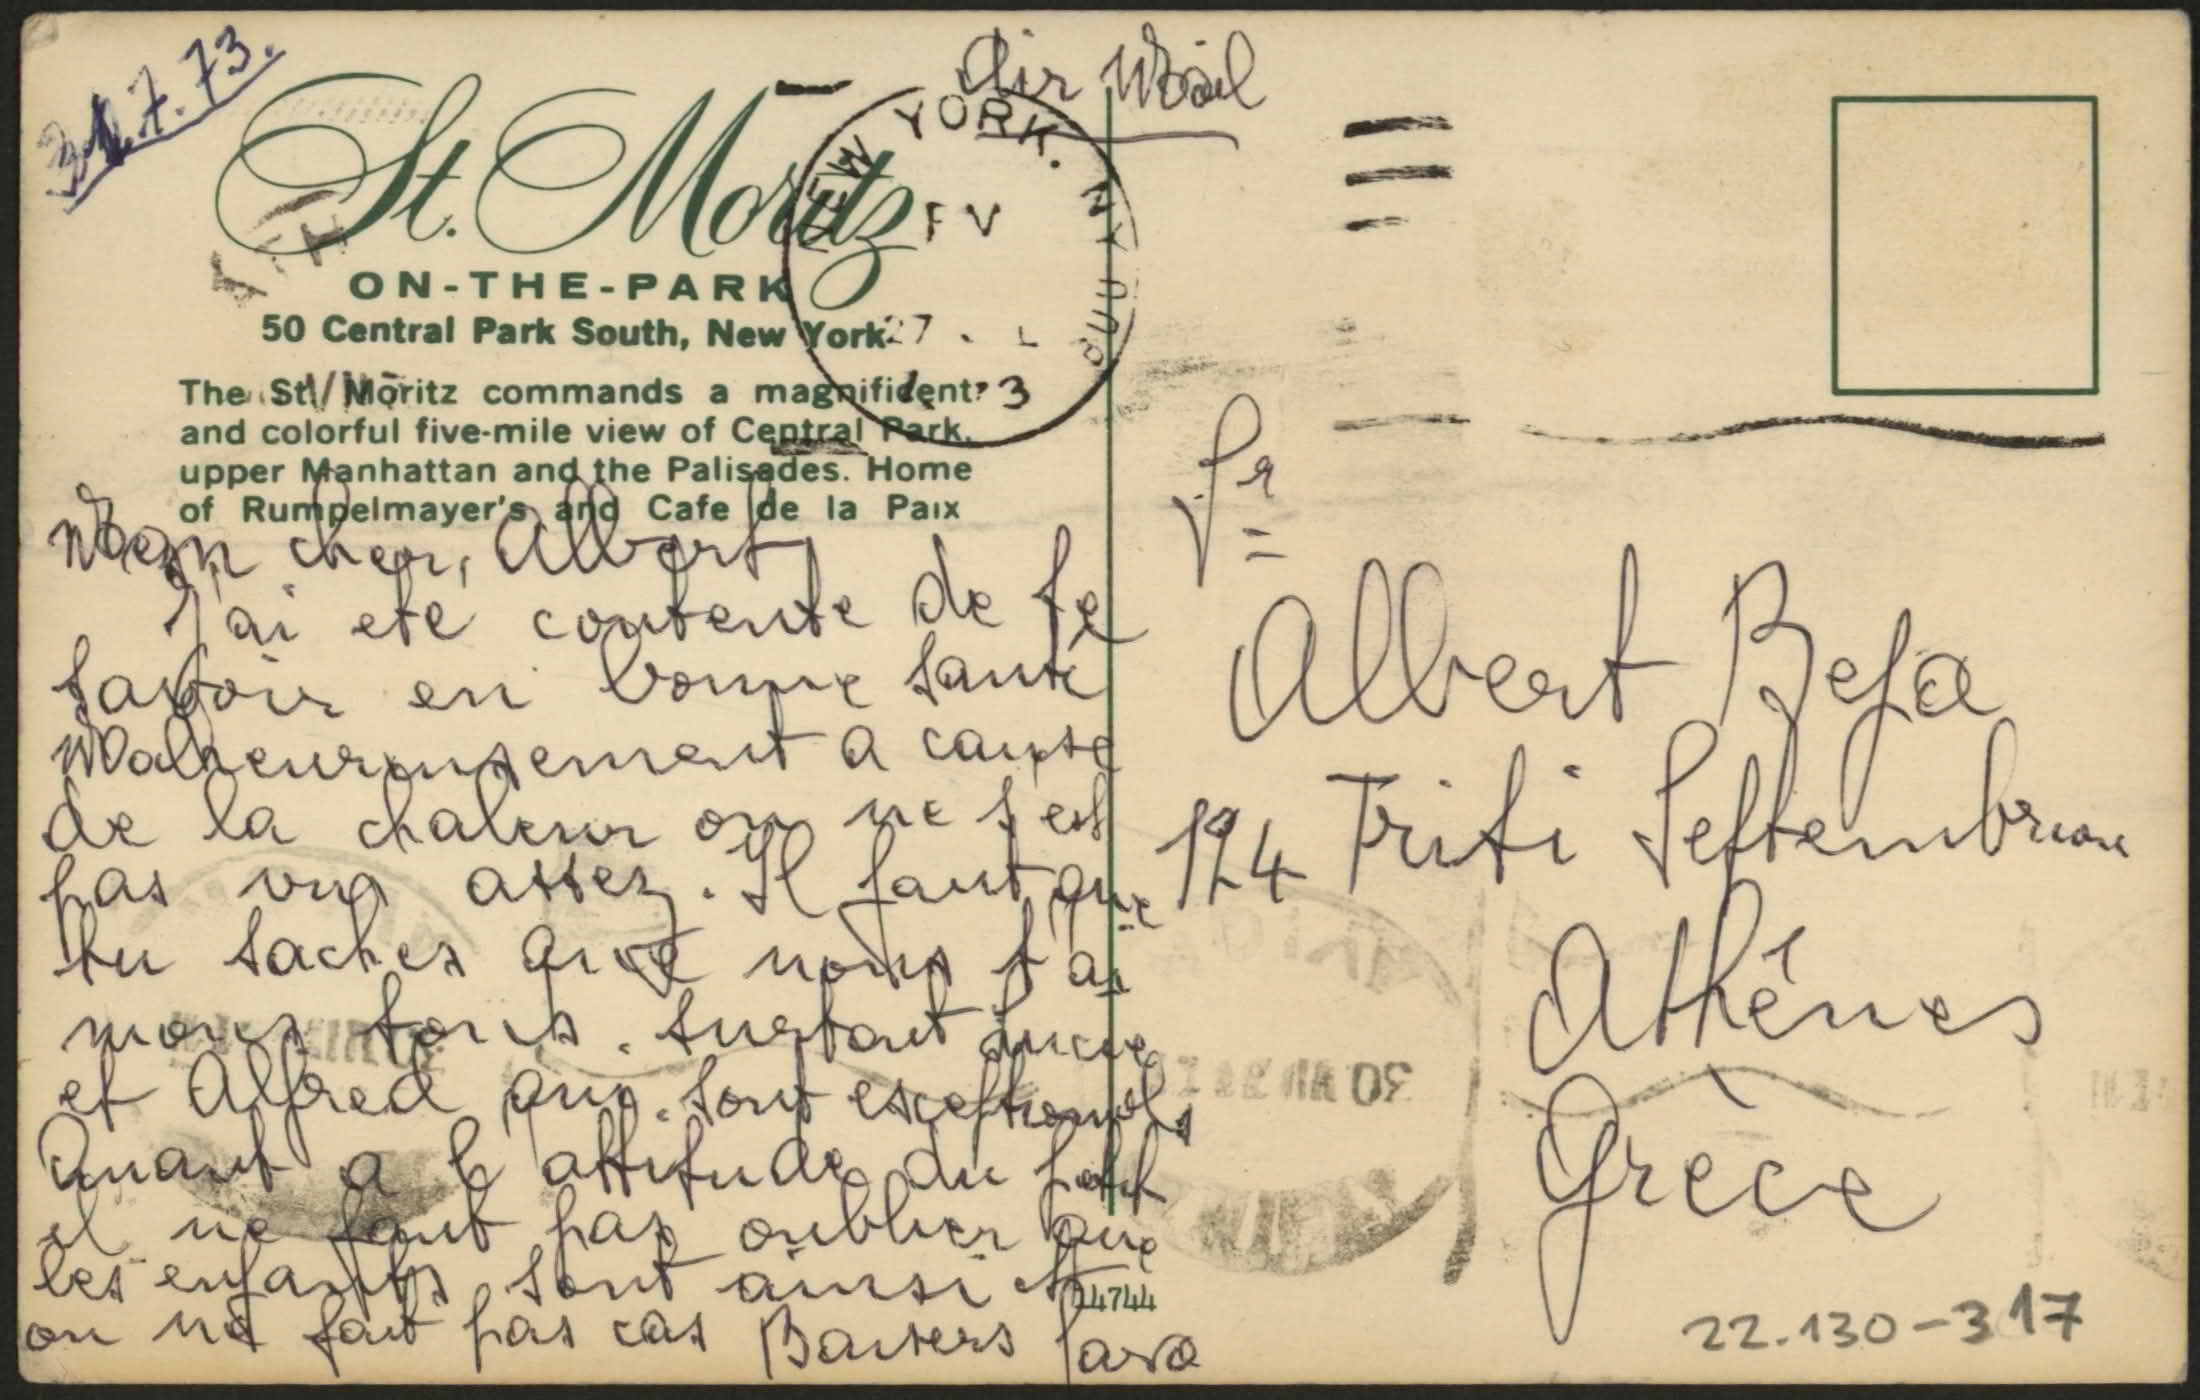 31.7.73.
Air Mail
St. Moritz
ON-THE-PARK
50 Central Park South, New York
The St. Moritz commands a magnificent
and colorful five-mile view of Central Park,
upper Manhattan and the Palisades. Home
of Rumpelmayer's and Cafe de la Paix
NEW YORK. N.Y.
27
Mon cher, Albert,
J'ai ete contente de te
savoir en bonne sante
Malheureusement a cause
de la chaleur on ne s'est
pas vus assez. Il faut que
tu saches que nous t'ai
mons tous. Surtout
et Alfred qui sont exceptionnels
Quant a l'attitude du petit
il ne faut pas oublier que
les enfants sont ainsi et
on ne fait pas cas Baisers Sara
14744
Sr
Albert Beja
124 Triti Septembriou
Athênes
Grèce
30
22.130-317